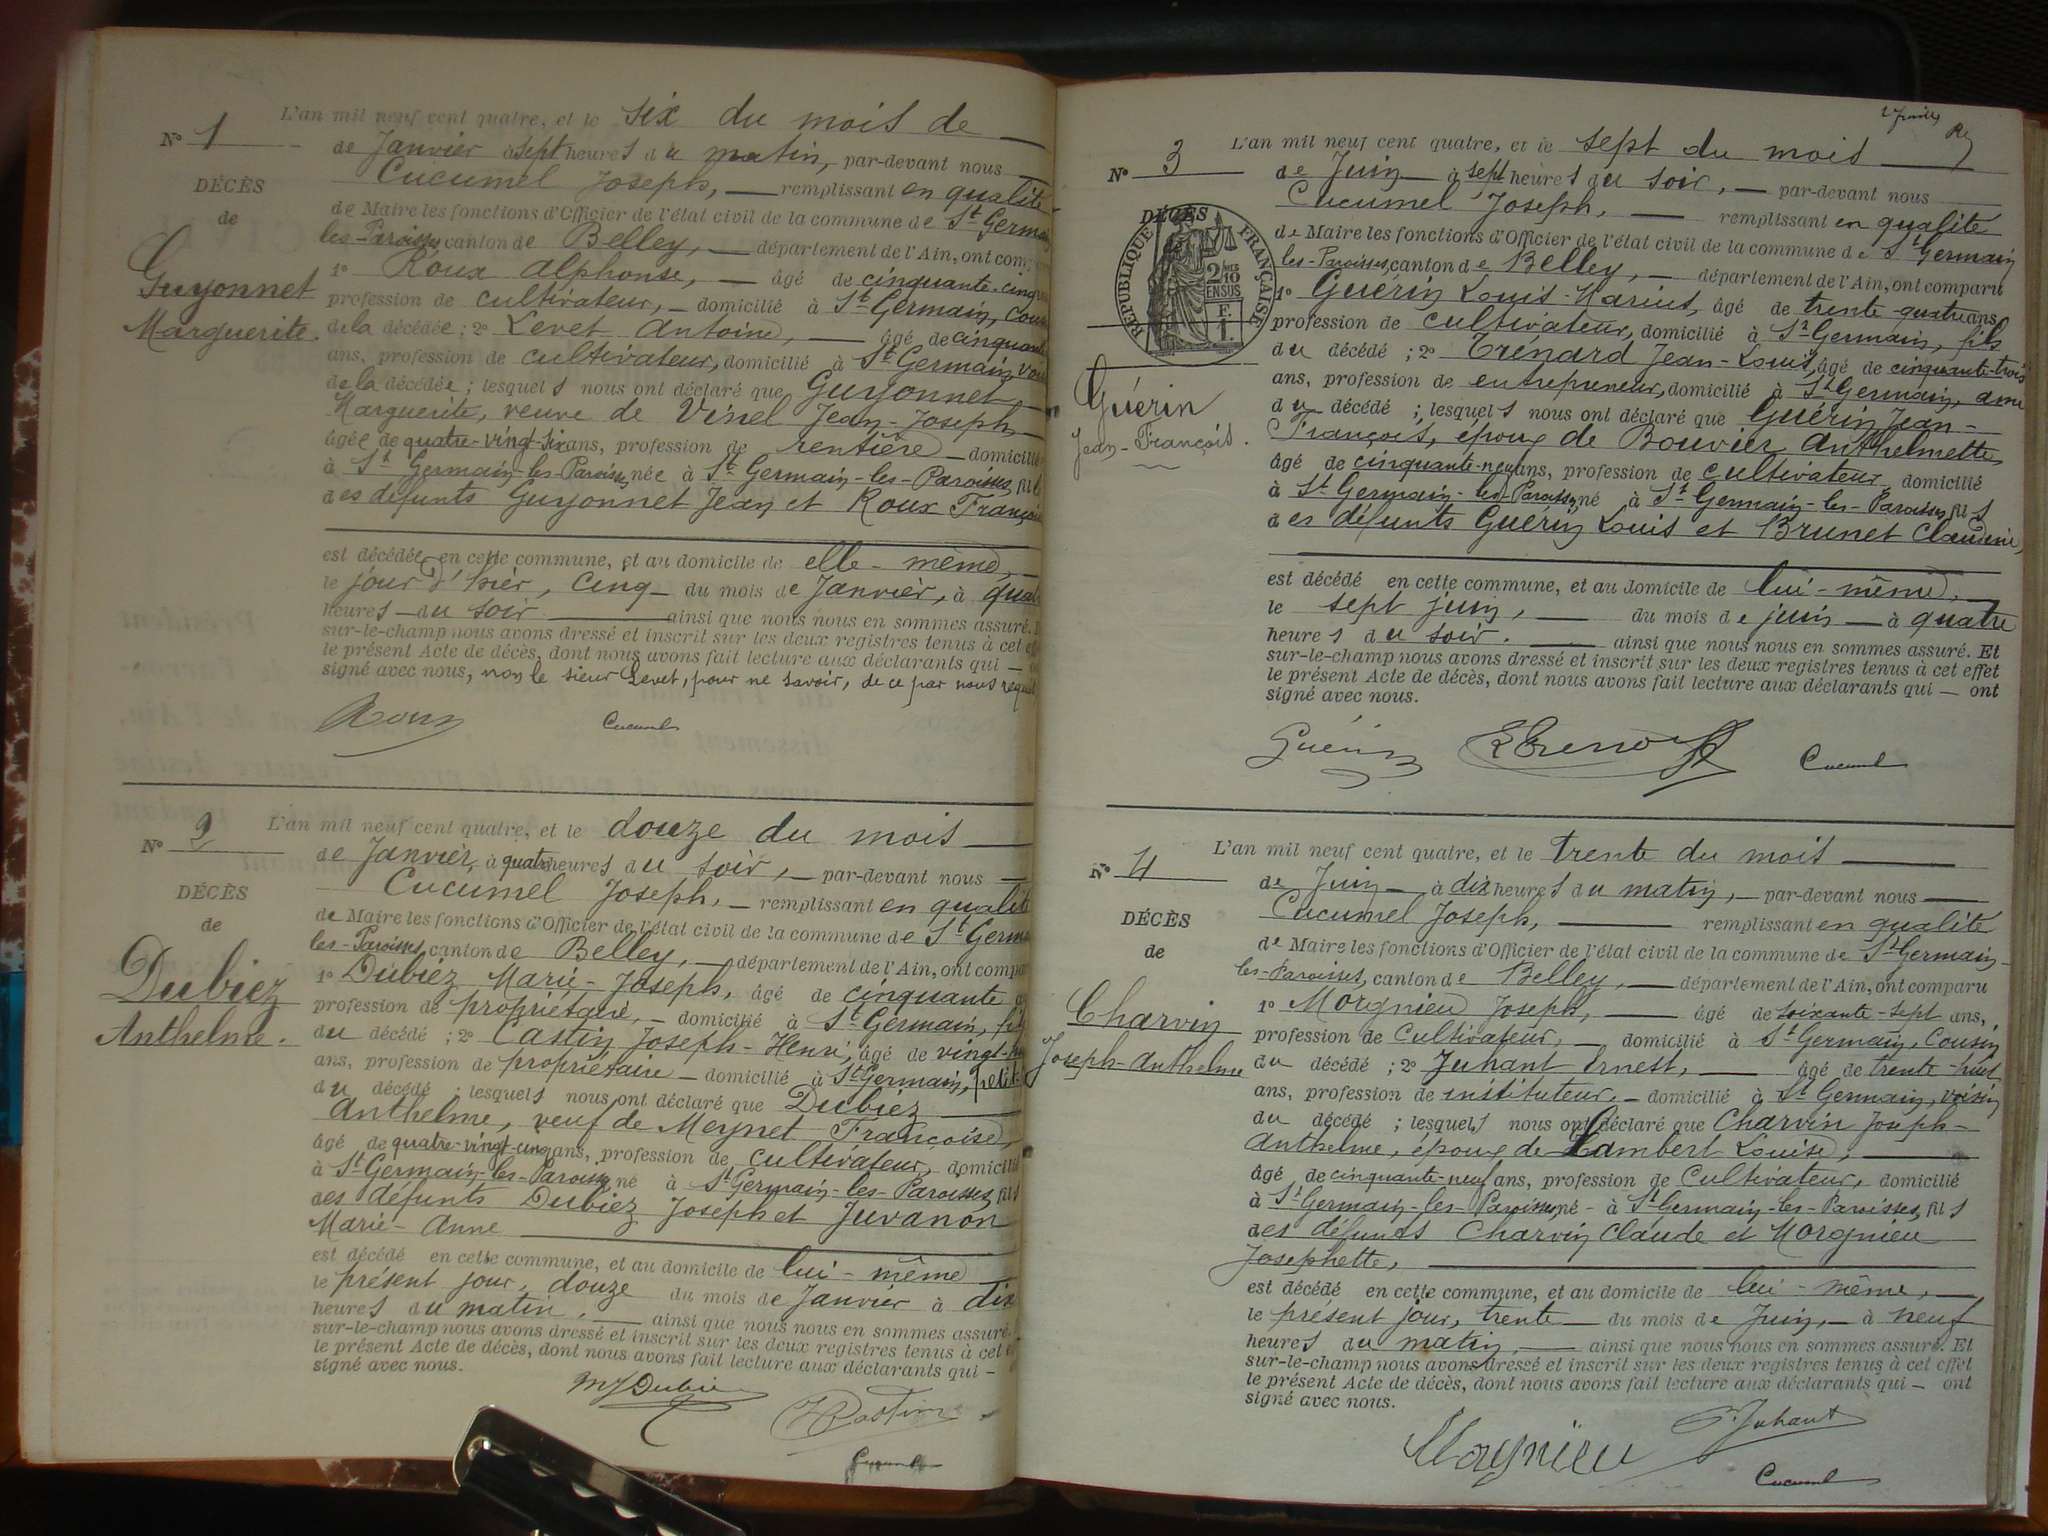 N° 1
DÉCÈS
de
Guyonnet
Marguerite.
L'an mil neuf cent quatre, et le six du mois de
de Janvier à sept heures du matin, par-devant nous
Cucumel Joseph, remplissant en qualité
de Maire les fonctions d'Officier de l'état civil de la commune de St Germain
les-Paroisses, canton de Belley, département de l'Ain, ont comp
1° Roux Alphonse, âgé de cinquante-cinq
profession de cultivateur, domicilié à St Germain, cousin
de la décédée ; 2° Levet Antoine, âgé de cinquante
ans, profession de cultivateur, domicilié à St Germain, voisin
de la décédée ; lesquels nous ont déclaré que Guyonnet
Marguerite, veuve de Vinel Jean-Joseph
âgée de quatre-vingt-six ans, profession de rentière domiciliée
à St Germain-les-Paroisses, née à St Germain-les-Paroisses, fille
des défunts Guyonnet Jean et Roux Françoise
est décédée en cette commune, et au domicile de elle-même,
le jour d'hier, cinq du mois de Janvier, à quatre
heures du soir ainsi que nous nous en sommes assuré.
sur-le-champ nous avons dressé et inscrit sur les deux registres tenus à cet eff
le présent Acte de décès, dont nous avons fait lecture aux déclarants qui
signé avec nous, non le sieur Levet, pour ne savoir, de ce par nous requis
Roux Cucumel
N° 2
DÉCÈS
de
Dubiez
Anthelme.
L'an mil neuf cent quatre, et le douze du mois
de Janvier, à quatre heures du soir, par-devant nous
Cucumel Joseph, remplissant en qualité
de Maire les fonctions d'Officier de l'état civil de la commune de St Germain
les-Paroisses, canton de Belley, département de l'Ain, ont compar
1° Dubiez Marie-Joseph, âgé de cinquante
profession de propriétaire, domicilié à St Germain, fils
du décédé ; 2° Castin Joseph-Henri, âgé de vingt-
ans, profession de propriétaire domicilié à St Germain, petit-
du décédé ; lesquels nous ont déclaré que Dubiez
Anthelme, veuf de Meynet Françoise,
âgé de quatre-vingt-cinq ans, profession de cultivateur, domicilié
à St Germain-les-Paroisses, né à St Germain-les-Paroisses, fils
des défunts Dubiez Joseph et Juvanon
Marie-Anne
est décédé en cette commune, et au domicile de lui-même
le présent jour, douze du mois de Janvier à dix
heures du matin, ainsi que nous nous en sommes assuré.
sur-le-champ nous avons dressé et inscrit sur les deux registres tenus à cet
le présent Acte de décès, dont nous avons fait lecture aux déclarants qui
signé avec nous.
MJ Dubiez
H Castin
Cucumel
N° 3
DÉCÈS
RÉPUBLIQUE FRANÇAISE
2/10
EN SUS
Guérin
Jean-François.
L'an mil neuf cent quatre, et le sept du mois
de Juin à sept heures du soir, par-devant nous
Cucumel Joseph, remplissant en qualité
de Maire les fonctions d'Officier de l'état civil de la commune de St Germain
les-Paroisses, canton de Belley, département de l'Ain, ont comparu
1° Guérin Louis-Marius, âgé de trente-quatre ans,
profession de cultivateur, domicilié à St Germain, fils
du décédé ; 2° Trénard Jean-Louis, âgé de cinquante-trois
ans, profession de entrepreneur, domicilié à St Germain, ami
du décédé ; lesquels nous ont déclaré que Guérin Jean-
François, époux de Bouvier Anthelmette
âgé de cinquante-neuf ans, profession de cultivateur domicilié
à St Germain-les-Paroisses, né à St Germain-les-Paroisses, fils
des défunts Guérin Louis et Brunet Claudine,
est décédé en cette commune, et au domicile de lui-même,
le sept juin, du mois de juin à quatre
heures du soir. ainsi que nous nous en sommes assuré. Et
sur-le-champ nous avons dressé et inscrit sur les deux registres tenus à cet effet
le présent Acte de décès, dont nous avons fait lecture aux déclarants qui ont
signé avec nous.
Guérin Cucumel
N° 4
DÉCÈS
de
Charvin
Joseph-Anthelme
L'an mil neuf cent quatre, et le trente du mois
de Juin à dix heures du matin, par-devant nous
Cucumel Joseph, remplissant en qualité
de Maire les fonctions d'Officier de l'état civil de la commune de St Germain-
les-Paroisses, canton de Belley, département de l'Ain, ont comparu
1° Morgnieu Joseph, âgé de soixante-sept ans,
profession de cultivateur, domicilié à St Germain, Cousin
du décédé ; 2° Juhant Ernest, âgé de trente-huit
ans, profession de instituteur, domicilié à St Germain, voisin
du décédé ; lesquels nous ont déclaré que Charvin Joseph-
Anthelme, époux de Lambert Louise,
âgé de cinquante-neuf ans, profession de Cultivateur, domicilié
à St Germain-les-Paroisses, né à St Germain-les-Paroisses, fils
des défunts Charvin Claude et Morgnieu
Josephette,
est décédé en cette commune, et au domicile de lui-même,
le présent jour, trente du mois de Juin, à neuf
heures du matin, ainsi que nous nous en sommes assuré. Et
sur-le-champ nous avons dressé et inscrit sur les deux registres tenus à cet effet
le présent Acte de décès, dont nous avons fait lecture aux déclarants qui ont
signé avec nous.
Morgnieu Juhant
Cucumel